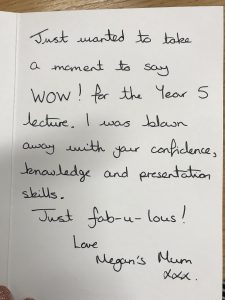 Just wanted to take
a moment to say
WOW! for the Year 5
lecture. I was blown
away with your confidence,
knowledge and presentation
skills.
Just fab-u-lous!
Love
Megan's Mum
xxx.